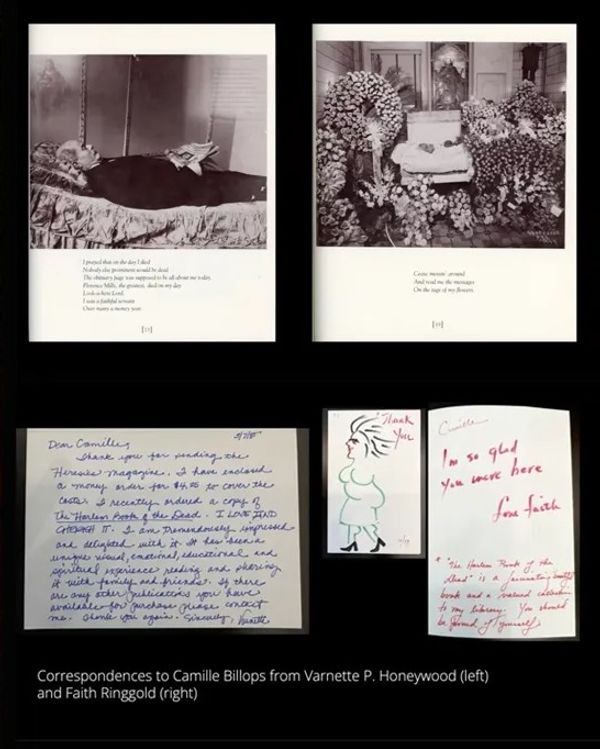 I prayed that on the day I died
Nobody else prominent would be dead
The obituary page was supposed to be all about me today.
Florence Mills, the greatest, died on my day
Look-a-here Lord,
I was a faithful servant
Over many a money year.
[13]
Cease movin' around
And read me the messages
On the tags of my flowers.
Dear Camille,
Thank you for sending the
Heresies magazine. I have enclosed
a money order for to cover the
costs. I recently ordered a copy of
The Harlem Book of the Dead. I LOVE AND
CHERISH IT. I am tremendously impressed
and delighted with it. It has been a
unique visual, emotional, educational and
spiritual experience reading and sharing
it with family and friends. If there
are any other publications you have
available for purchase please contact
me. Thank you again. Sincerely, Varnette
Thank
You
Camille
I'm so glad
You were here
Love faith
* "The Harlem Book of the
Dead" is a fascinating
book and a valued
to my library. You should
be proud of yourself
Correspondences to Camille Billops from Varnette P. Honeywood (left)
and Faith Ringgold (right)